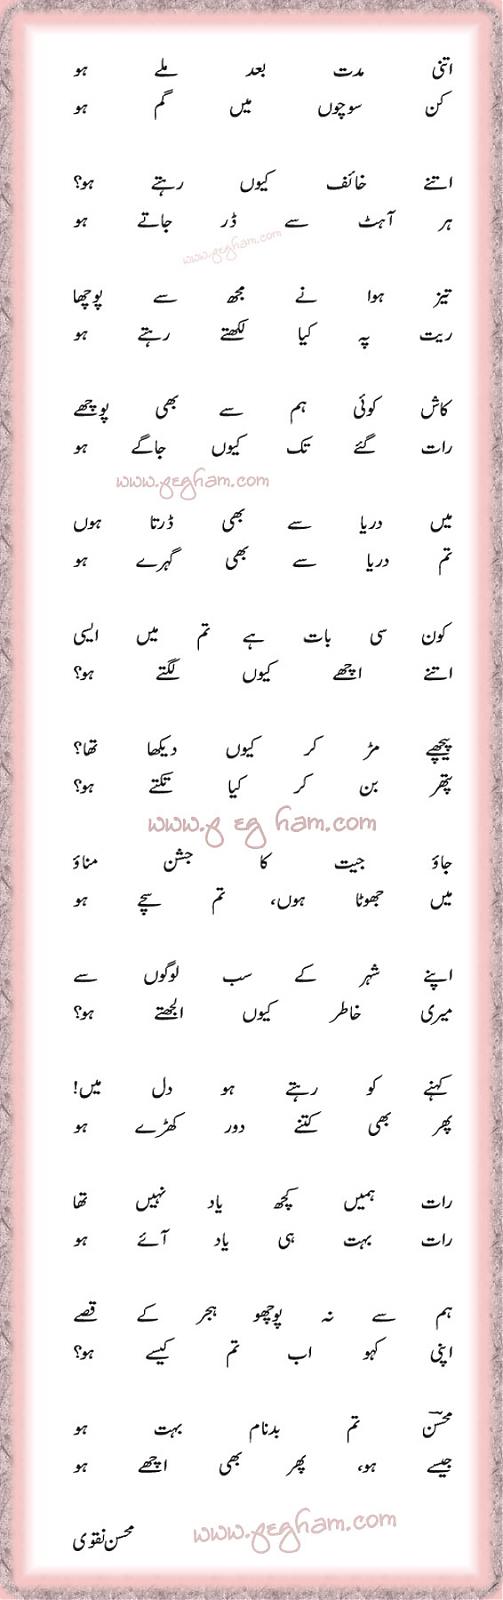 اتنی مدت بعد ملے ہو
کن سوچوں میں گم ہو
اتنے خائف کیوں رہتے ہو؟
ہر آہٹ سے ڈر جاتے ہو
www.pegham.com
تیز ہوا نے مجھ سے پوچھا
ریت پہ کیا لکھتے رہتے ہو
کاش کوئی ہم سے بھی پوچھے
رات گئے تک کیوں جاگے ہو
www.pegham.com
میں دریا سے بھی ڈرتا ہوں
تم دریا سے بھی گہرے ہو
کون سی بات ہے تم میں ایسی
اتنے اچھے کیوں لگتے ہو؟
پیچھے مڑ کر کیوں دیکھا تھا؟
پتھر بن کر کیا تکتے ہو؟
www.pegham.com
جاؤ جیت کا جشن مناؤ
میں جھوٹا ہوں، تم سچے ہو
اپنے شہر کے سب لوگوں سے
میری خاطر کیوں الجھتے ہو؟
کہنے کو رہتے ہو دل میں!
پھر بھی کتنے دور کھڑے ہو
رات ہمیں کچھ یاد نہیں تھا
رات بہت ہی یاد آئے ہو
ہم سے نہ پوچھو ہجر کے قصے
اپنی کہو اب تم کیسے ہو؟
محسنؔ تم بدنام بہت ہو
جیسے ہو، پھر بھی اچھے ہو
www.pegham.com
محسن نقوی